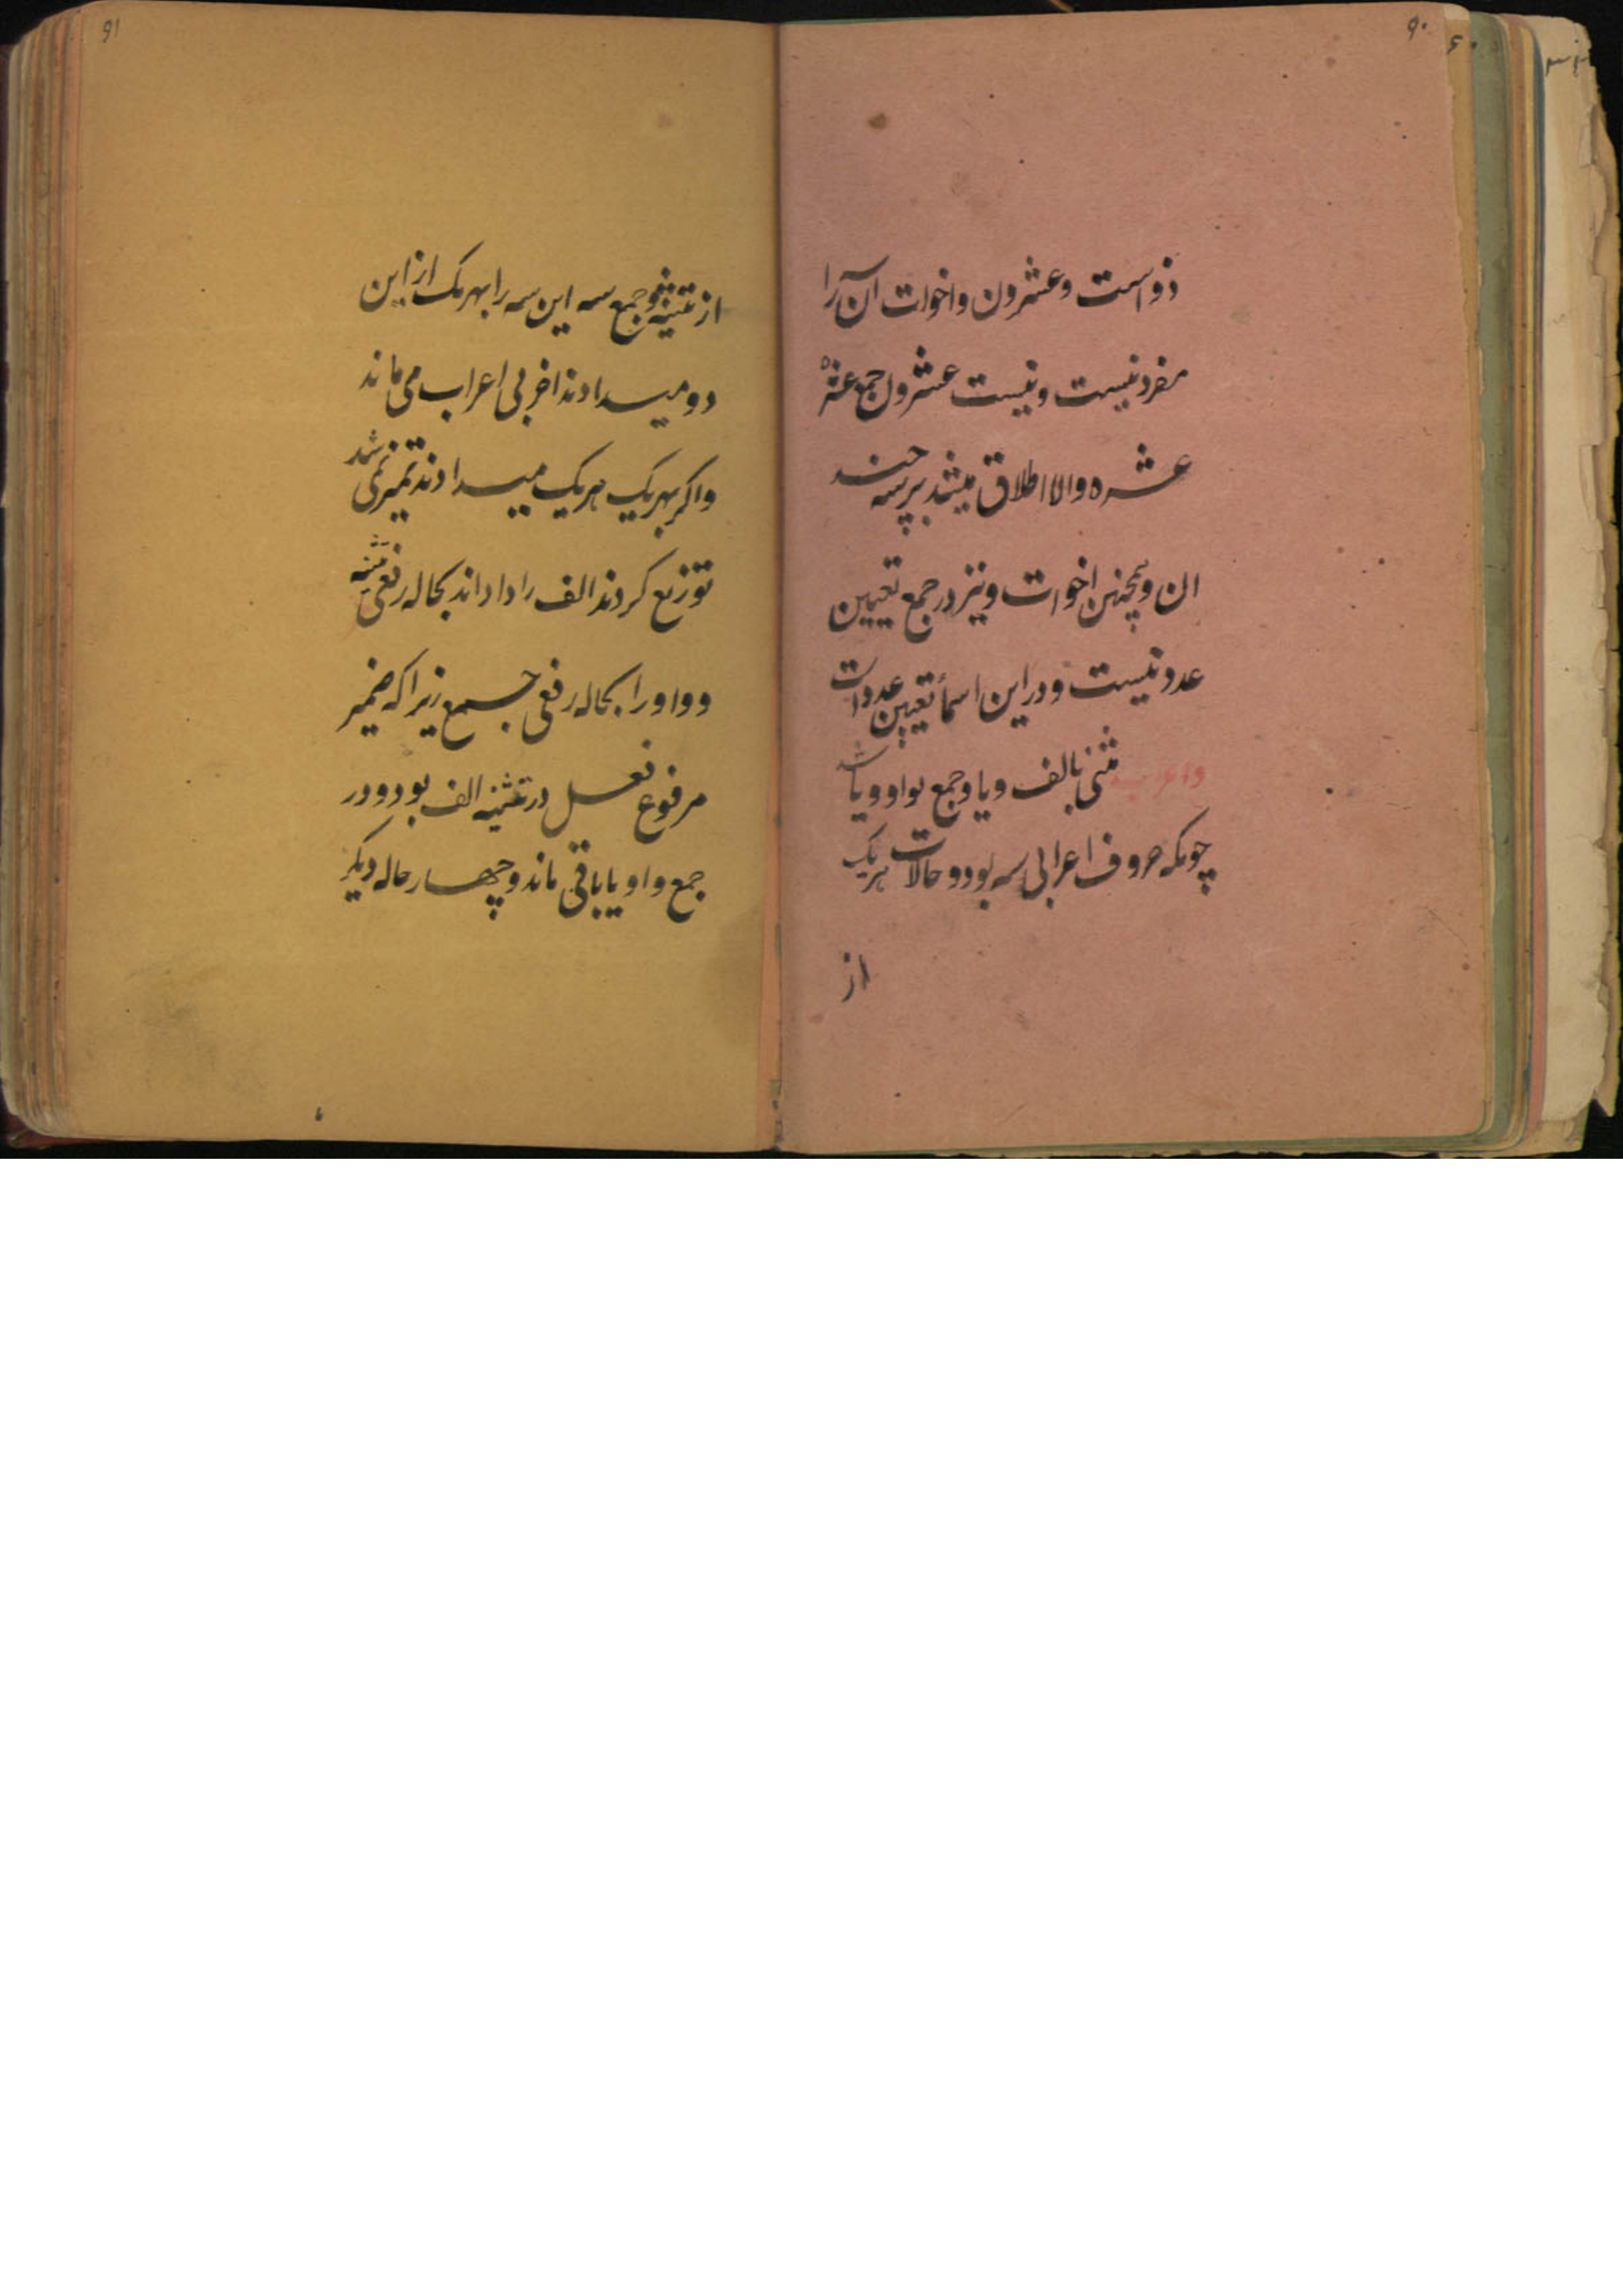 ۹۰
ذو است و عشرون و اخوات آن را
مفرد نیست و نیست عشرون جمع عشره
عشره والا اطلاق میشد بر سه چند
ان و همچنین اخوات و نیز در جمع تعیین
عدد نیست و در این اسماء تعیین عدد است
و اعراب مثنی بالف و یا و جمع بواو و یا شد
چونکه حروف اعرابی سه بود و حالات هریک
از
۹۱
از تثنیه و جمع سه این سه را بهر یک از این
دو میدادند اخر بی اعراب می ماند
و اکر بهر یک هریک میدادند تمیز نمی شد
توزیع کردند الف را داداند بحاله رفعی تثنیه
و واو را بحاله رفعی جمع زیرا که ضمیر
مرفوع فعل در تثنیه الف بود و در
جمع واو یا باقی ماند و چهار حاله دیکر